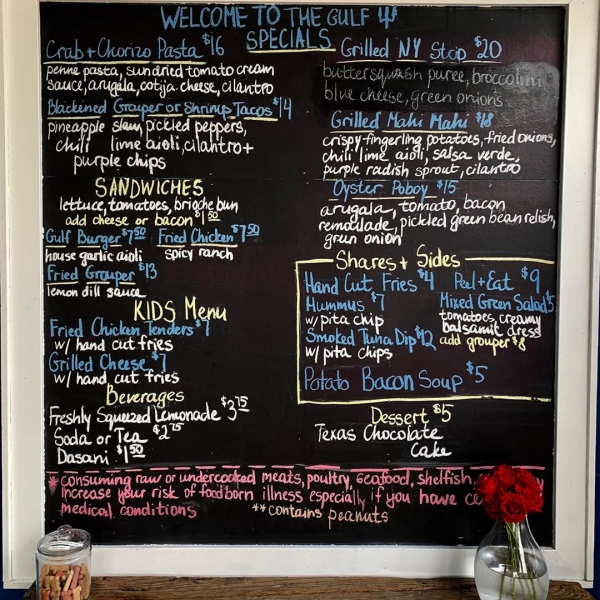 WELCOME TO THE GULF
SPECIALS
Crab + Chorizo Pasta $16
penne pasta, sundried tomato cream
sauce, arugala, cotija cheese, cilantro
Blackened Grouper or Shrimp Tacos $14
pineapple slaw, pickled peppers,
chili lime aioli, cilantro +
purple chips
Grilled NY Strip $20
buttersquash puree, broccolini
blue cheese, green onions
Grilled Mahi Mahi $18
crispy fingerling potatoes, fried onions,
chili lime aioli, salsa verde,
purple radish sprout, cilantro
Oyster Poboy $15
arugala, tomato, bacon
remoulade, pickled green bean relish,
green onion
SANDWICHES
lettuce, tomatoes, brioche bun
add cheese or bacon $1.50
Gulf Burger $7.50 Fried Chicken $7.50
house garlic aioli spicy ranch
Fried Grouper $13
lemon dill sauce
KIDS Menu
Fried Chicken Tenders $7
w/ hand cut fries
Grilled Cheese $7
w/ hand cut fries
Beverages
Freshly Squeezed Lemonade $3.75
Soda or Tea $2.75
Dasani $1.50
Shares + Sides
Hand Cut Fries $4 Peel + Eat $9
Hummus $7 Mixed Green Salad $5
w/ pita chip tomatoes, creamy
balsamic dress
Smoked Tuna Dip $12 add grouper $8
w/ pita chips
Potato Bacon Soup $5
Dessert $5
Texas Chocolate
Cake
*consuming raw or undercooked meats, poultry, seafood, shelfish,
increase your risk of foodborn illness especially if you have
medical conditions **contains peanuts